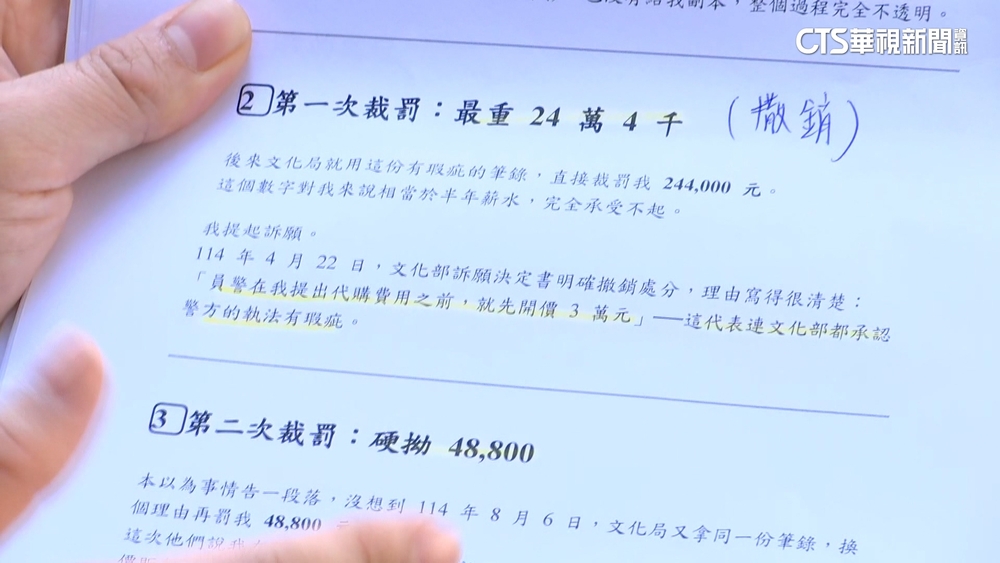 也沒有給我副本，整個過程完全不透明。
CTS華視新聞資訊
2 第一次裁罰：最重 24 萬 4 千 (撤銷)
後來文化局就用這份有瑕疵的筆錄，直接裁罰我 244,000 元。
這個數字對我來說相當於半年薪水，完全承受不起。
我提起訴願。
114 年 4 月 22 日，文化部訴願決定書明確撤銷處分，理由寫得很清楚：
「員警在我提出代購費用之前，就先開價 3 萬元」──這代表連文化部都承認
警方的執法有瑕疵。
3 第二次裁罰：硬拗 48,800
本以為事情告一段落，沒想到 114 年 8 月 6 日，文化局又拿同一份筆錄，換
個理由再罰我 48,800
這次他們說我